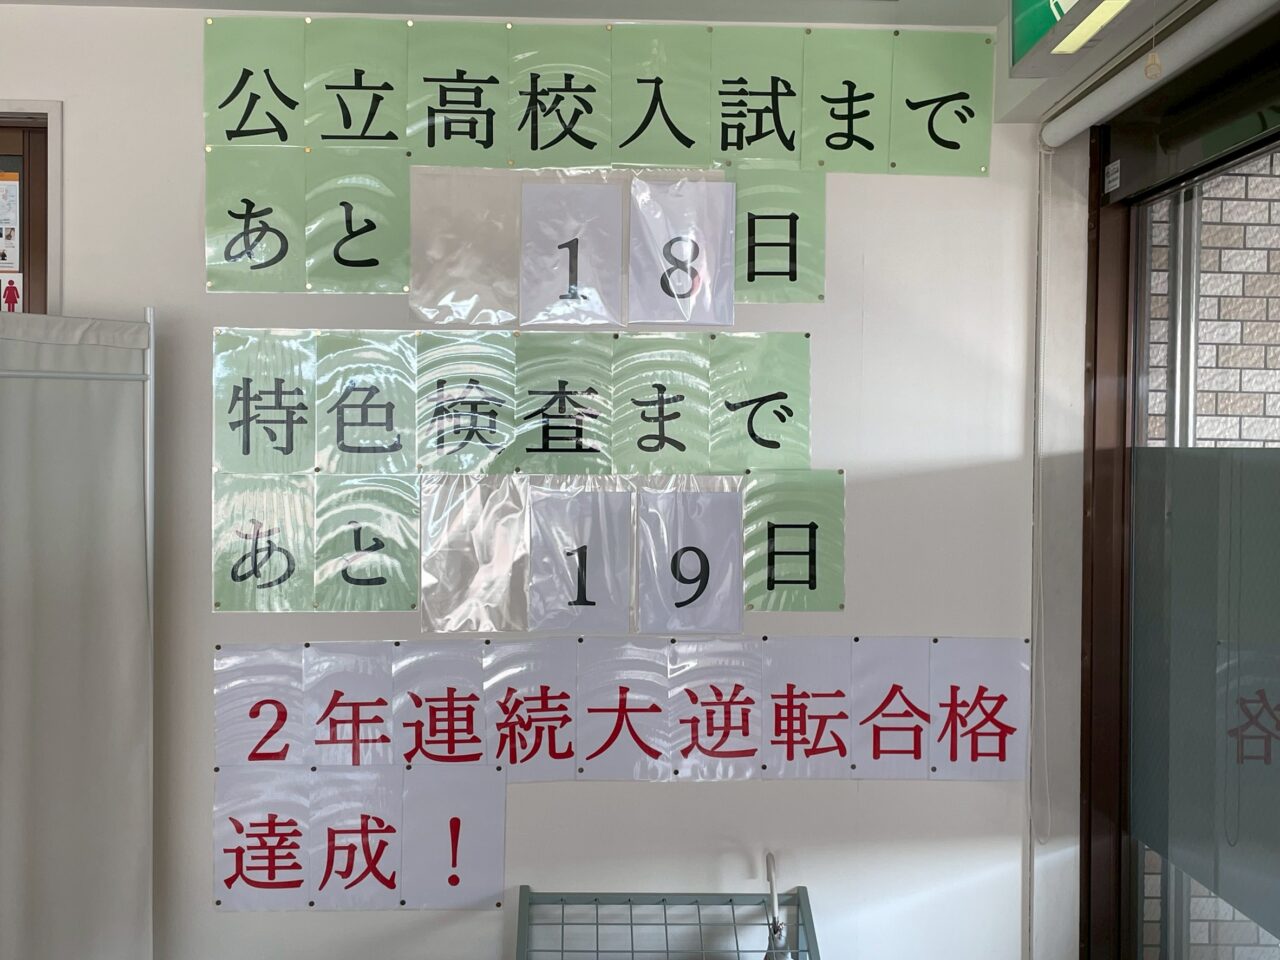 公立高校入試まで
あと 18日
特色検査まで
あと 19日
2年連続大逆転合格
達成！
格